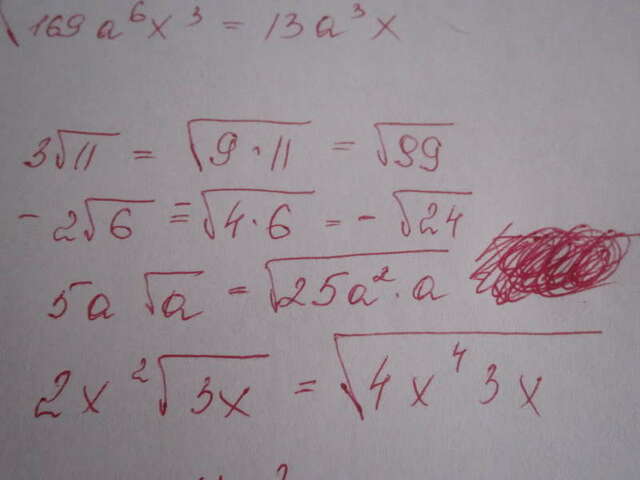 √169a⁶x³ = 13a³x
3√11 = √9·11 = √99
-2√6 = -√4·6 = -√24
5a√a = √25a²·a
2x²√3x = √4x⁴3x